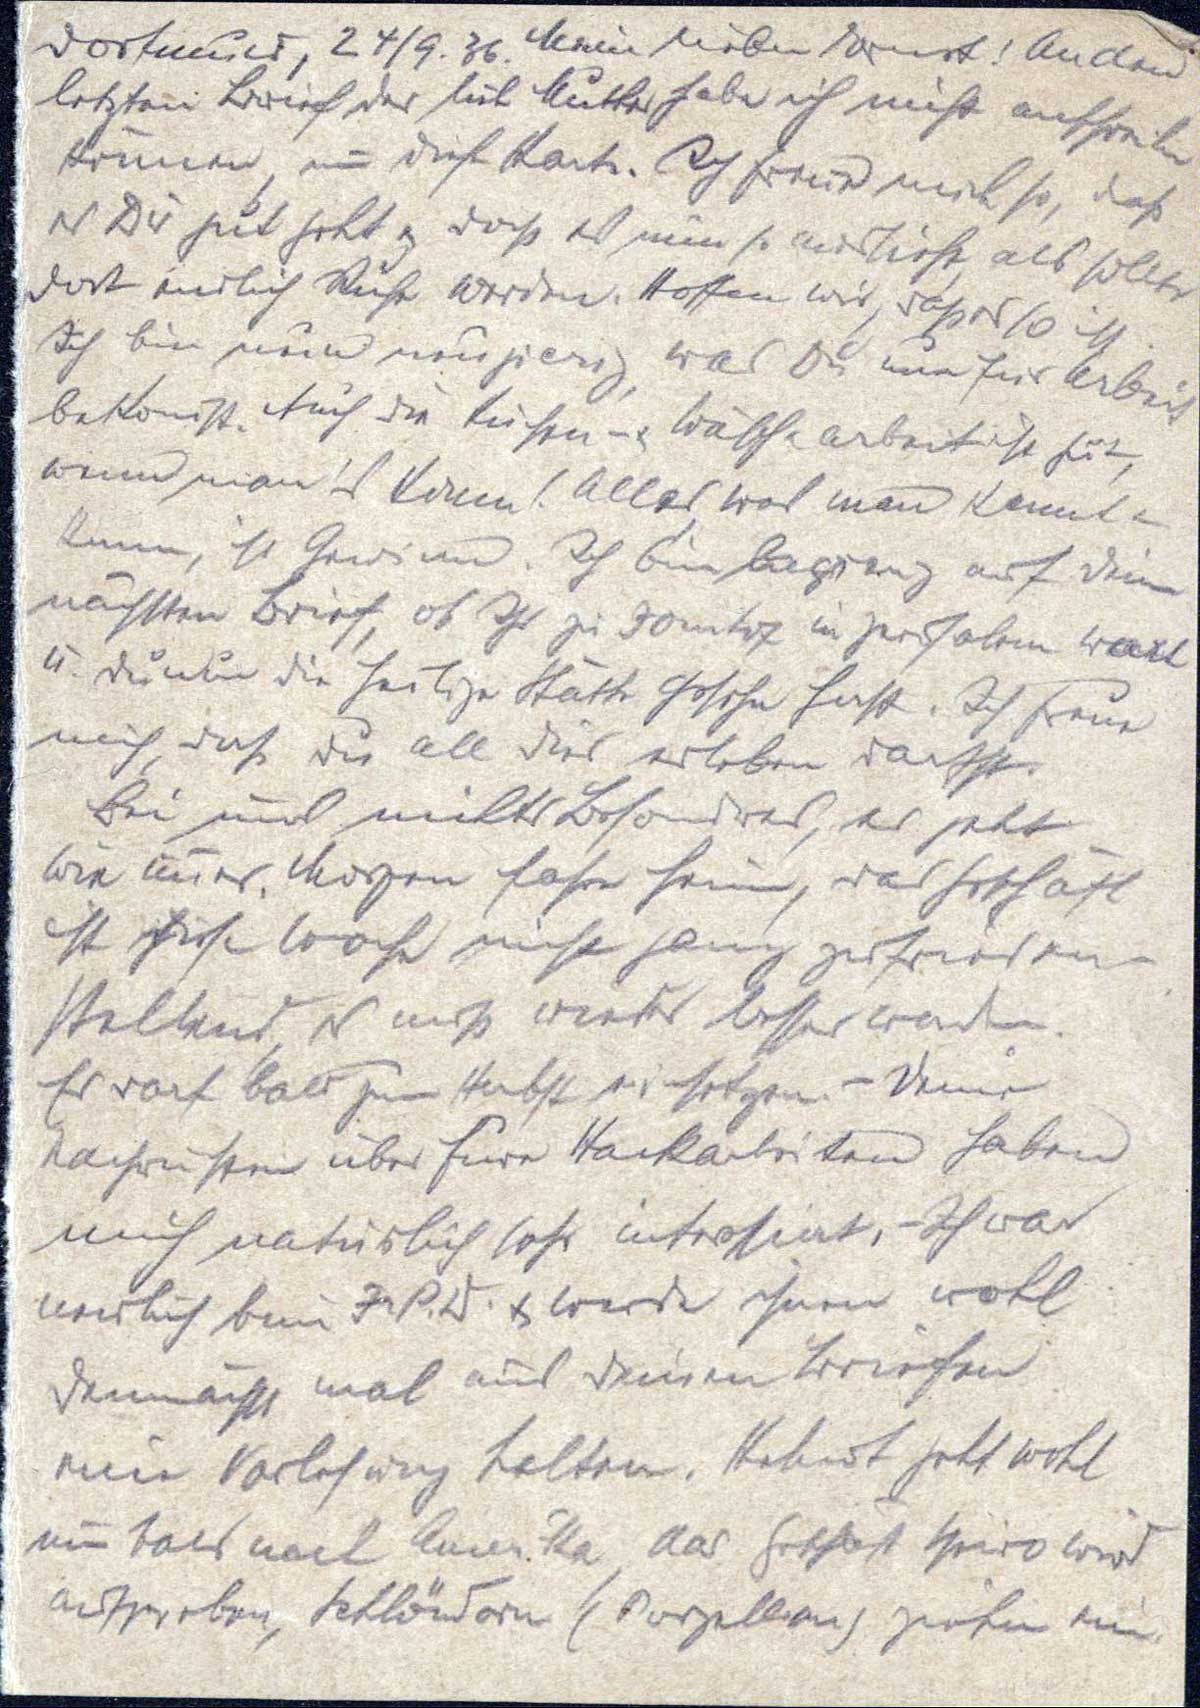 Dortmund, 24/9.36. Mein lieber Ernst! An den
letzten Brief der lieb Mutter habe ich nicht anschreiben
können, nun diese Karte. Ich freue mich so, daß
es Dir gut geht & daß es nun so aussieht, als sollte
dort endlich Ruhe werden. Hoffen wir, daß es so ist.
Ich bin nun neugierig, was Du nun für Arbeit
bekommst. Auch die Küchen- & Wäschearbeit ist gut,
wenn man's kann! Alles was man kennt u
kann, ist Gewinn. Ich bin begierig auf Dein
nächsten Brief, ob Ihr zu Jomtof in Jerusalem wart
u. Du nun die heilige Stätte gesehn hast. Ich freue
mich, daß Du all dies erleben darfst.
Bei uns nichts Besonderes, es geht
wie immer. Morgen fahre heim, das Geschäft
ist diese Woche nicht ganz zufrieden-
stellend, es muß wieder besser werden.
Es darf bald zum Herbst einsetzen. - Deine
Nachrichten über Eure Hackarbeiten haben
mich natürlich sehr interessiert. - Ich war
neulich beim J.P.D. & werde ihnen wohl
demnächst mal aus Deinen Briefen
eine Vorlesung halten. Helmut geht wohl
nun bald nach Amerika, das Geschäft Spiro wird
aufgegeben, Schlöndorn (Porzellan) ziehen ein.